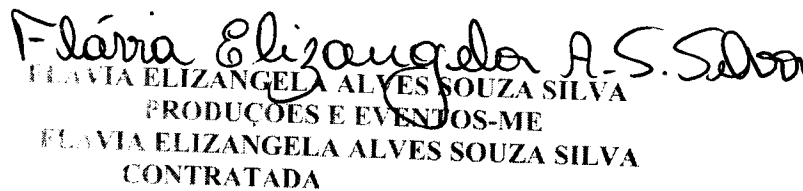 Flávia Elizangela A. S. Silva
FLAVIA ELIZANGELA ALVES SOUZA SILVA
PRODUÇOES E EVENTOS-ME
FLAVIA ELIZANGELA ALVES SOUZA SILVA
CONTRATADA